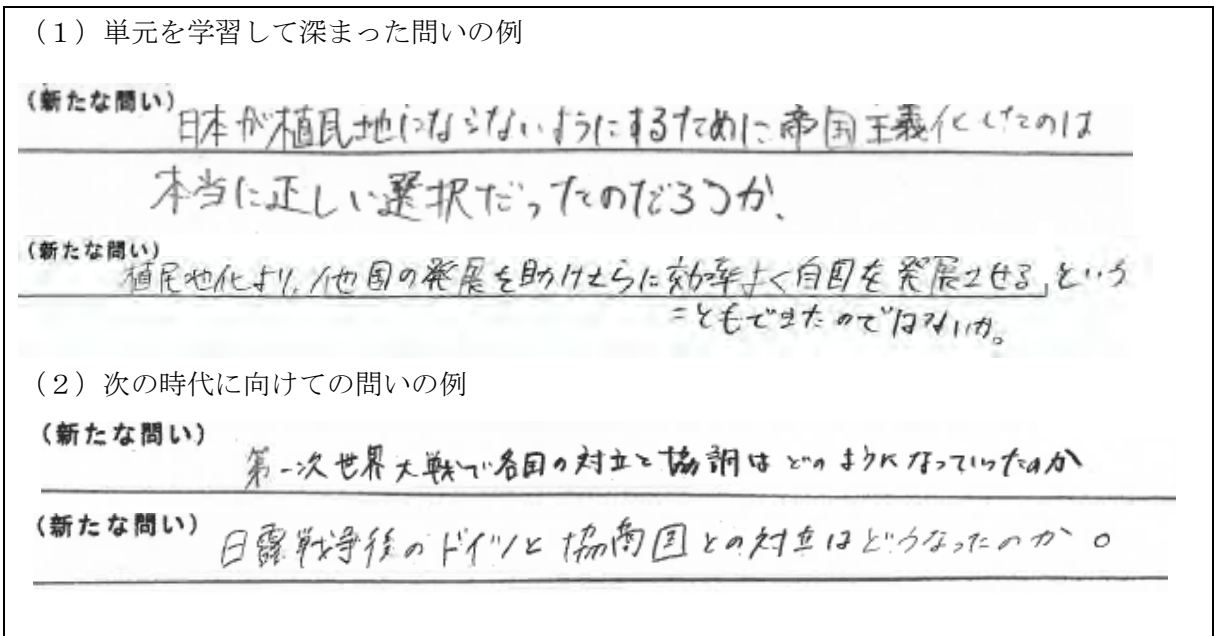 （１）単元を学習して深まった問いの例
（新たな問い）
日本が植民地にならないようにするために帝国主義化したのは
本当に正しい選択だったのだろうか、
（新たな問い）
植民地化より、他国の発展を助けさらに効率よく自国を発展させる、という
こともできたのではないか。
（２）次の時代に向けての問いの例
（新たな問い）
第一次世界大戦で各国の対立と協調はどのようになっていったのか
（新たな問い）
日露戦争後のドイツと協商国との対立はどうなったのか。